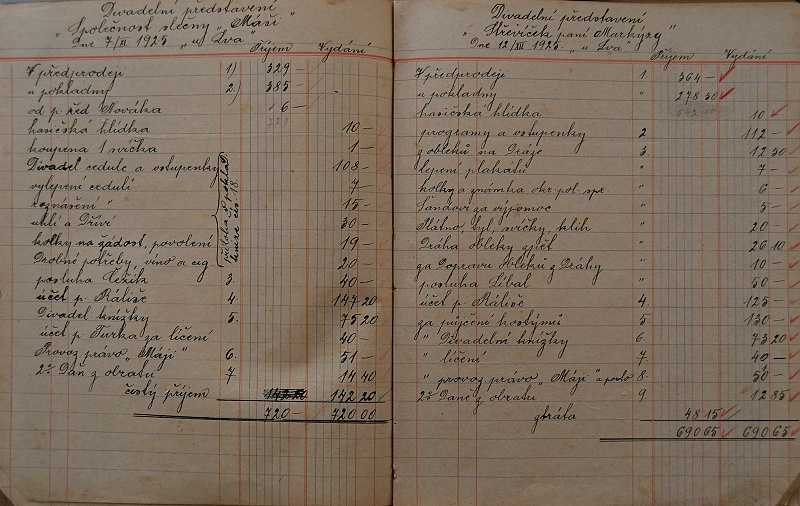 Divadelní představení
"Společnost slečny "Máši"
Dne 7/II 1925 "u Lva"
Příjem Vydání
V předprodeji 1) 329 —
u pokladny 2) 385 —
od p. před. Nováka 6 —
720
hasičská hlídka 10 —
koupena 1 svíčka 1 —
Divadel cedule a vstupenky 108 —
vylepení cedulí 7 —
roznášení " 15 —
uhlí a Dříví 30 —
kolky na žádost, povolení 19 —
Drobné potřeby, víno a cig 20 —
posluha Ježík 3. 40 —
účet p. Rálišе 4. 147 20
Divadel knížky 5. 75 20
účet p. Turka za líčení 40 —
Provoz právo "Máji" 6. 51 —
2% Daň z obratu 7 14 40
čistý příjem 142 20
720 — 720 00
Divadelní představení
"Střevíček paní Markýzy"
Dne 12/III 1925 "u Lva"
Příjem Vydání
V předprodeji 1. 364 —
u pokladny " 278 50
hasičská hlídka " 10
programy a vstupenky 2 112 —
z obleků na Dráze 3. 12 30
lepení plakátů " 7 —
kolky a známka okr. pol. spr. " 6 —
za výpomoc " 5 —
svíčky, klih " 20 —
Dráha obleky zpět " 26 10
za Dopravu Obleků z Dráhy " 10 —
posluha Líbal " 50 —
účet p. Rálišе 4. 125 —
za půjčení kostýmů 5. 130 —
" Divadelní knížky 6. 73 20
" líčení 7. 40 —
" provoz. právo "Máji" a porto 8. 50 —
2% Daně z obratu 9. 12 85
ztráta 48 15
690 65 690 65